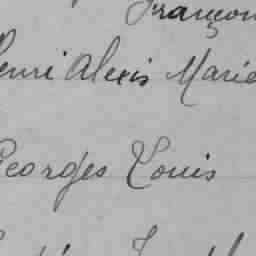 Françoi
Henri Alexis Marie
Georges Louis